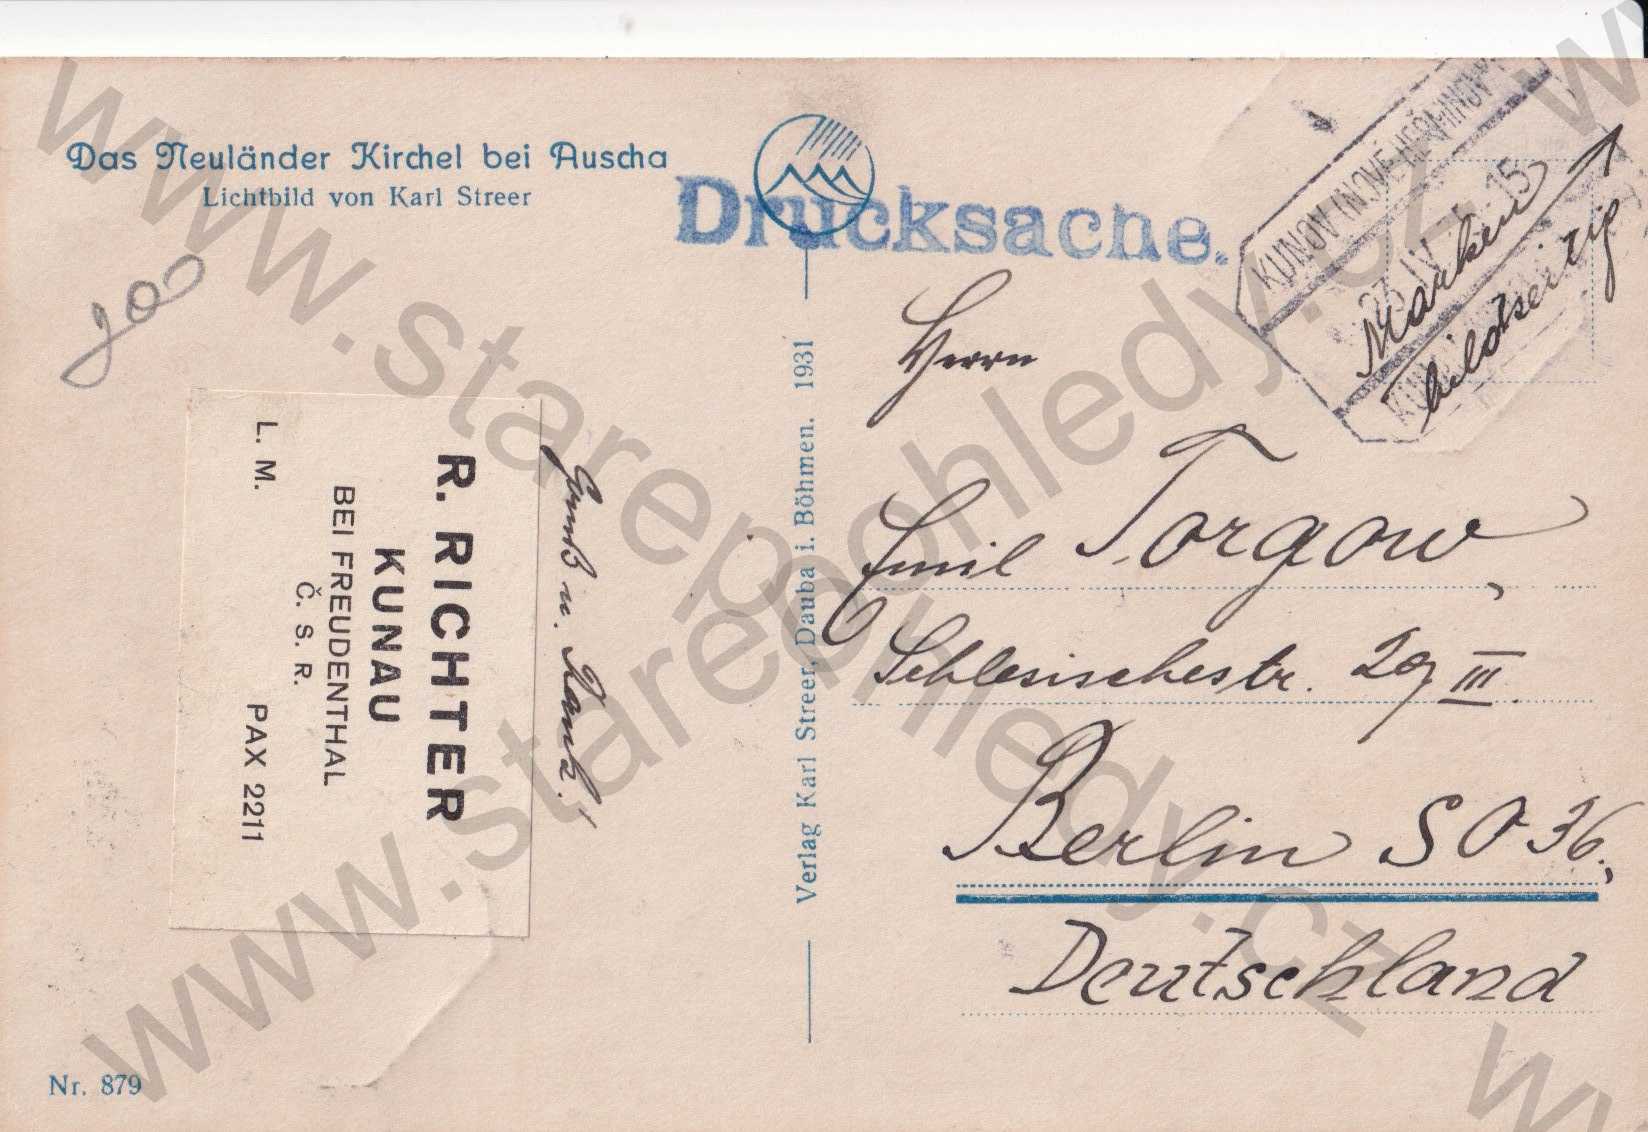 Das Neuländer Kirchel bei Auscha
Lichtbild von Karl Streer
Drucksache.
KUNOV IN NOVÉ HEŘMINOVY
15
Marken
bildseitig
Herrn
Emil Torgow,
Schlesischestr. 29 III.
Berlin SO 36.,
Deutschland
Verlag Karl Streer, Dauba i. Böhmen. 1931
Gruß u. Dank!
R. RICHTER
KUNAU
BEI FREUDENTHAL
Č. S. R.
L. M. PAX 2211
Nr. 879
www.starepohledy.cz
www.starepohledy.cz